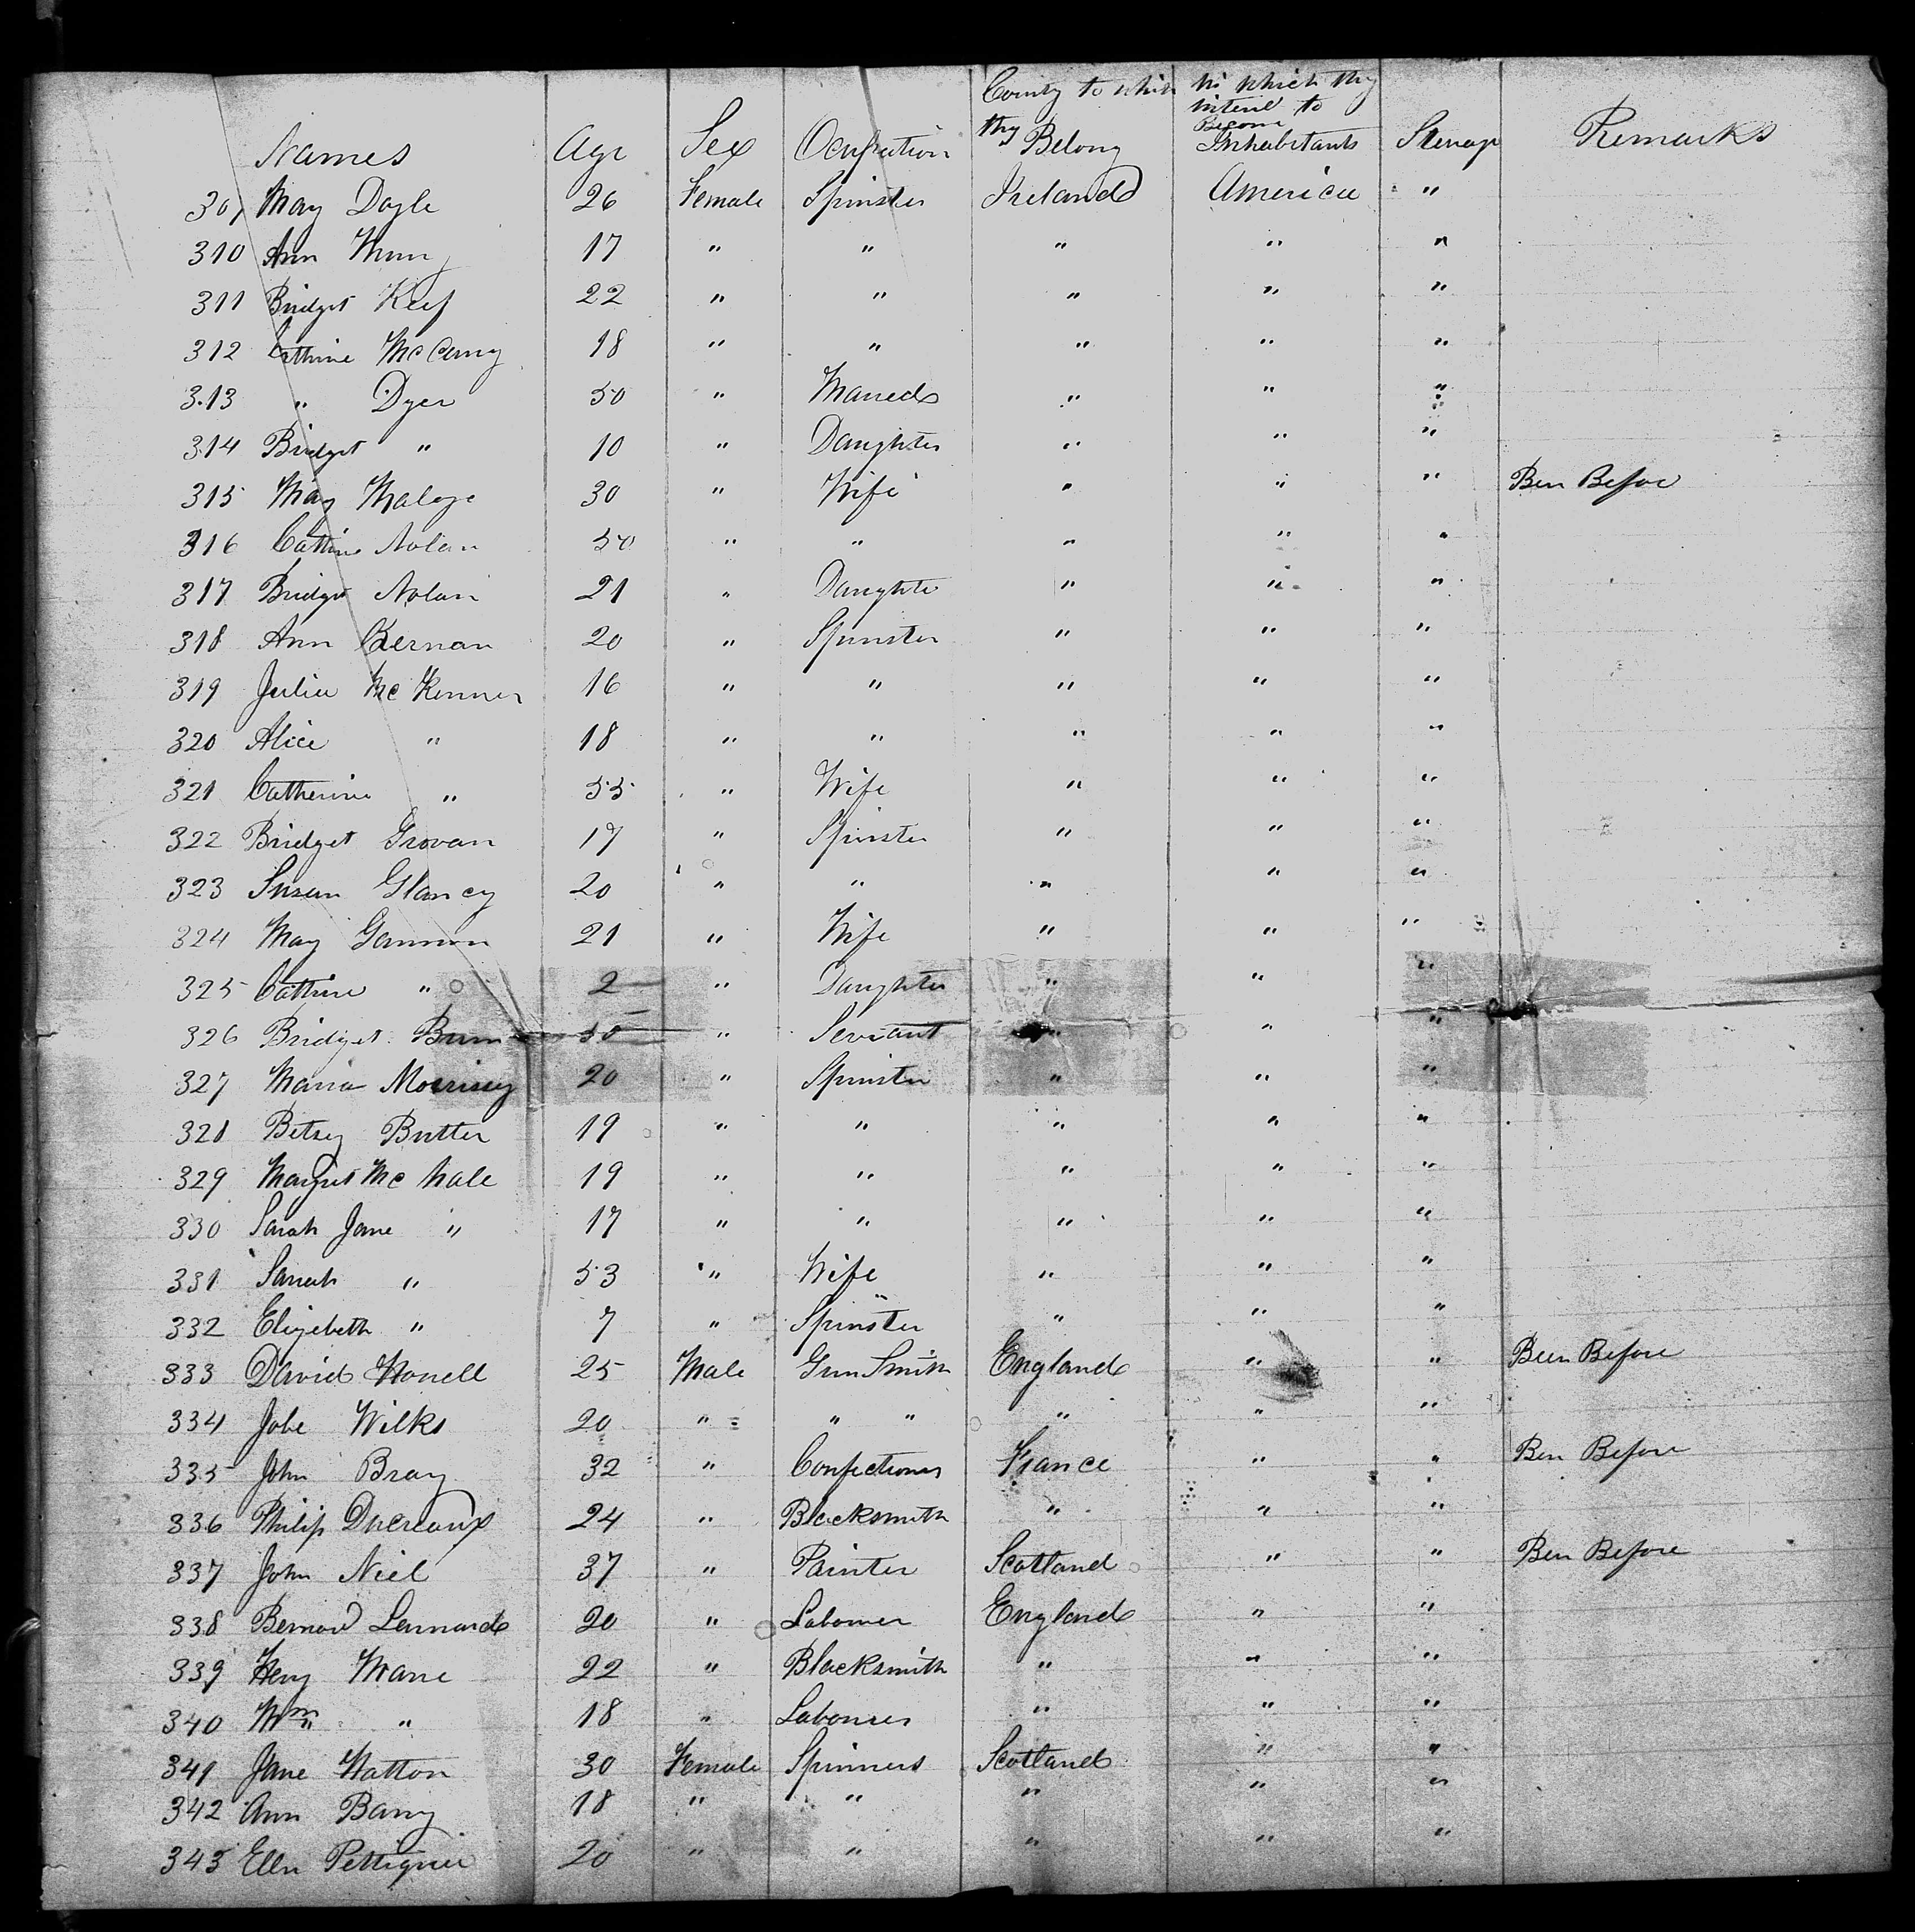 Names Age Sex Ocupation County to which they Belong In which they intend to Become Inhabitants Sterage Remarks
309 May Doyle 26 Female Spinster Ireland America "
310 Ann 17 " " " " "
311 Bridget Keef 22 " " " " "
312 Cathrine 18 " " " " "
313 " Dyer 50 " Maried " " "
314 Bridget " 10 " Daughter " " "
315 May 30 " Wife " " " Ben Before
316 Cathrine Nolan 50 " " " " "
317 Bridget Nolan 21 " Daughter " " "
318 Ann Kernan 20 " Spinster " " "
319 Julia McKenner 16 " " " " "
320 Alice " 18 " " " " "
321 Catherine " 55 " Wife " " "
322 Bridget Grovan 17 " Spinster " " "
323 Susan Glancy 20 " " " " "
324 May Gannon 21 " Wife " " "
325 Cathrine " 2 " Daughter " " "
326 Bridget 30 " Servant " " "
327 Maria Morrissy 20 " Spinster " " "
328 Betsey Butter 19 " " " " "
329 Margret McHale 19 " " " " "
330 Sarah Jane " 17 " " " " "
331 Sarah " 53 " Wife " " "
332 Elizebeth " 7 " Spinster " " "
333 David Howell 25 Male Gun Smith England " " Been Before
334 Jobe Wilks 20 " " " " " "
335 John Bray 32 " Confectioner France " " Ben Before
336 Philip 24 " Blacksmith " " "
337 John Niel 37 " Painter Scotland " " Ben Before
338 Bernard Lennard 20 " Labourer England " "
339 Heny 22 " Blacksmith " " "
340 Wm " 18 " Labourer " " "
341 Jane Watton 30 Female Spinners Scotland " "
342 Ann Barry 18 " " " " "
343 Ellen Pettigrew 20 " " " " "